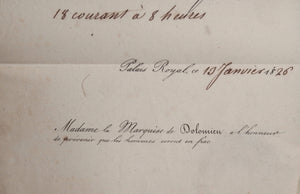 18 courant à 8 heures
Palais Royal, ce 10 Janvier 1826
Madame la Marquise de Dolomieu a l'honneur
de prévenir que les hommes seront en frac